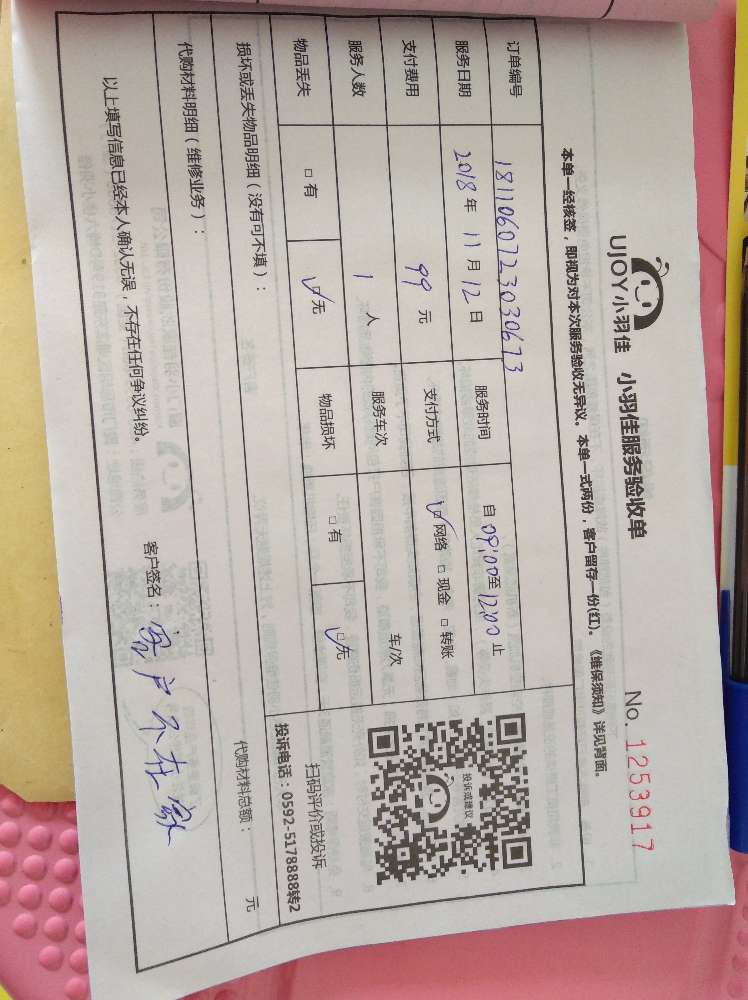 UJOY小羽佳 小羽佳服务验收单 No. 1253917
本单一经核签，即视为对本次服务验收无异议。本单一式两份，客户留存一份(红)。《维保须知》详见背面。
订单编号 1811060723030673
服务日期 2018年 11月 12日 服务时间 自09:00至12:00止
支付费用 99元 支付方式 ☑网络 □现金 □转账
服务人数 1人 服务车次 车/次
物品丢失 □有 ☑无 物品损坏 □有 ☑无
投诉或建议
扫码评价或投诉
投诉电话：0592-5178888转2
损坏或丢失物品明细（没有可不填）：
代购材料明细（维修业务）： 代购材料总额： 元
以上填写信息已经本人确认无误，不存在任何争议纠纷。 客户签名：客户不在家